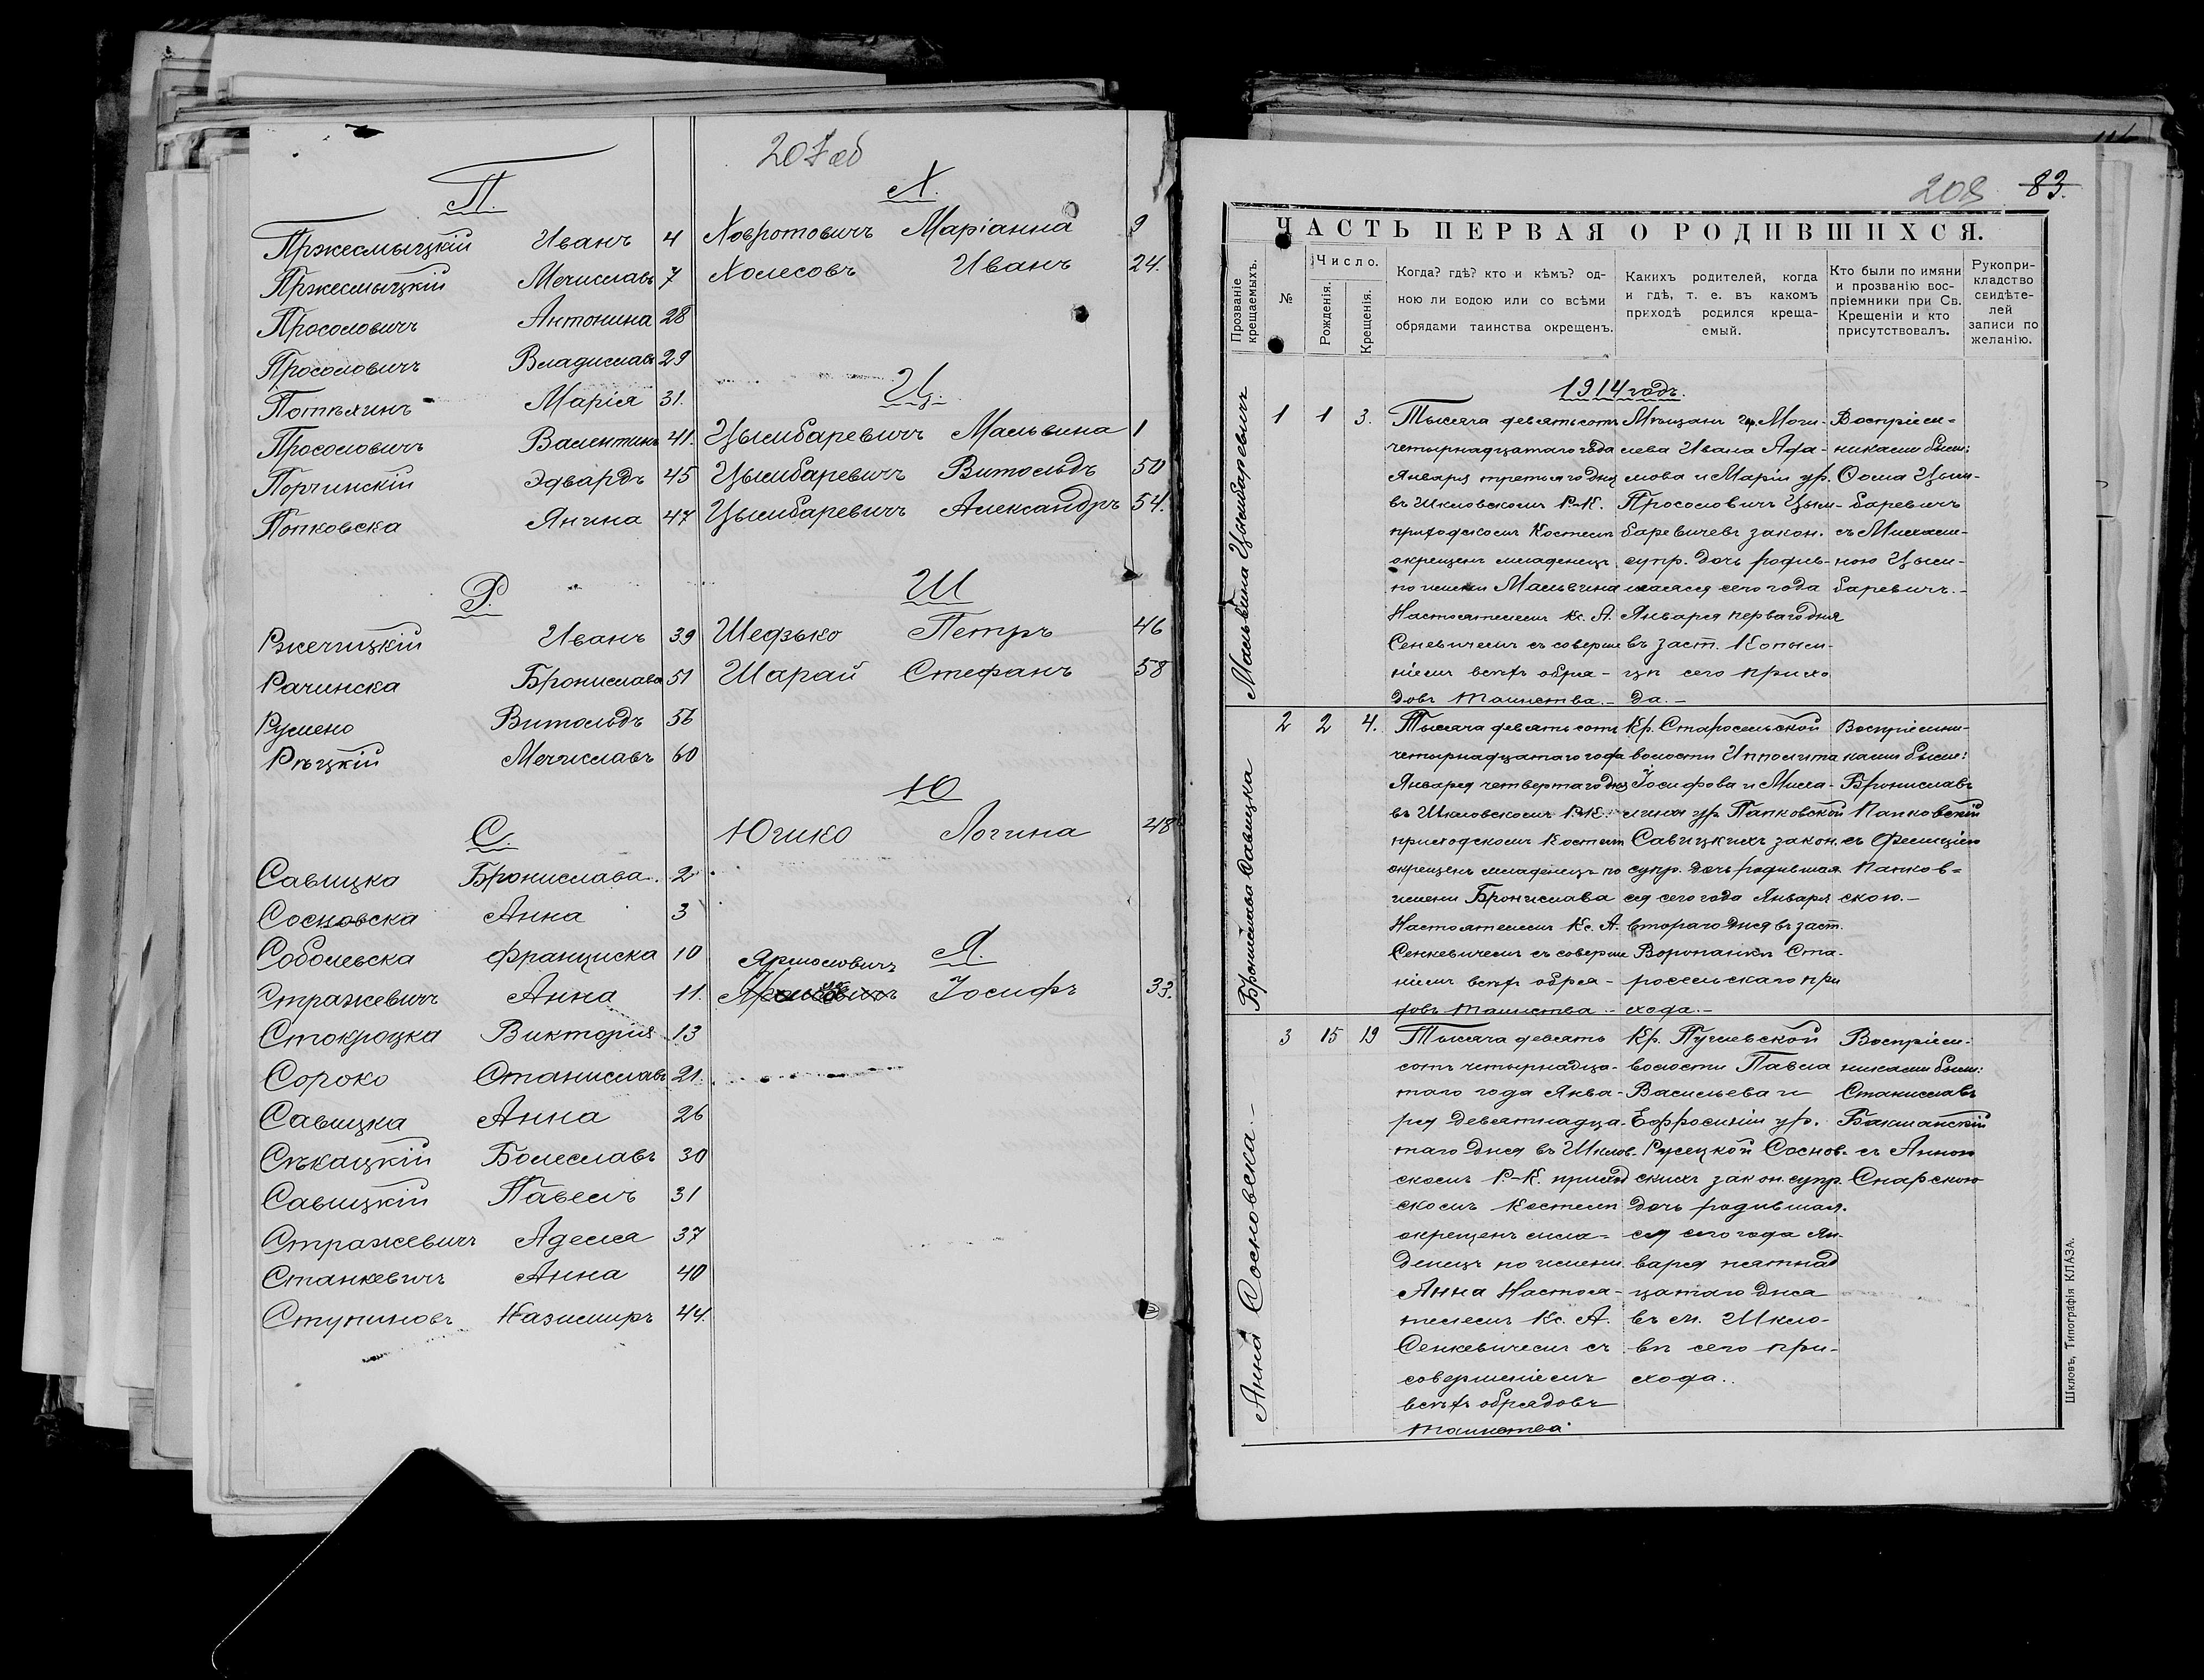 207 об
П.
Пржесмыцкій Иванъ 4
Пржесмыцкій Мечиславъ 7
Просоловичъ Антонина 28
Просоловичъ Владиславъ 29
Потѣхинъ Марія 31.
Просоловичъ Валентинъ 41.
Порчинскій Эдвардъ 45
Попковска Янина 47
Р.
Ржечицкій Иванъ 39
Рачинска Бронислава 51
Румено Витольдъ 56
Рѣцкій Мечиславъ 60
С.
Савицка Бронислава. 2
Сосновска Анна 3
Соболевска Франциска 10
Стражевичъ Анна 11.
Стокроцка Викторія 13
Сороко Станиславъ 21.
Савицка Анна 26
Сѣкацкій Болеславъ 30
Савицкій Павелъ 31
Стражевичъ Аделя 37
Станкевичъ Анна 40
Ступиновъ Казимиръ 44.
Х.
Ховротовичъ Маріанна 9
Холесовъ Иванъ 24.
Ц.
Цымбаревичъ Мальвина 1
Цымбаревичъ Витольдъ 50
Цымбаревичъ Александръ 54.
Ш
Шедзько Петръ 46
Шарай Стефанъ 58
Ю
Югико Логина 48
Я.
Ярмоловичъ
Іосифъ 33.
208 83.
ЧАСТЬ ПЕРВАЯ О РОДИВШИХСЯ.
Прозваніе крещаемыхъ.
№
Число.
Рожденія.
Крещенія.
Когда? гдѣ? кто и кѣмъ? од-
ною ли водою или со всѣми
обрядами таинства окрещенъ.
Какихъ родителей, когда
и гдѣ, т. е. въ какомъ
приходѣ родился креща-
емый.
Кто были по имяни
и прозванію вос-
пріемники при Св.
Крещеніи и кто
присутствовалъ.
Рукопри-
кладство
свидѣте-
лей
записи по
желанію.
1914 годъ.
Мальвина Цымбаревичъ
1 1 3.
Тысяча девятьсотъ
четырнадцатаго года
Января третьяго дня
въ Шкловскомъ Р-К.
приходскомъ Костелѣ
окрещенъ младенецъ
по имени Мальвина
Настоятелемъ Кс. А.
Сенкевичемъ съ соверше
ніемъ всѣхъ обря-
довъ Таинства.-
Мѣщанъ гр. Моги-
лева Ивана Ада-
мова и Маріи ур.
Просоловичъ Цым-
баревичевъ закон.
супр. дочь родив-
шаяся сего года
Января перваго дня
въ заст. Копыси-
цѣ сего прихо
да.-
Воспріем-
никами были:
Ѳома Цым-
баревичъ
съ Михали-
ною Цым-
баревичъ.-
Бронислава Савицка
2 2 4.
Тысяча девятьсотъ
четырнадцатаго года
Января четвертаго дня
въ Шкловскомъ Р-К.
приходскомъ Костелѣ
окрещенъ младенецъ по
имени Бронислава
Настоятелемъ Кс. А.
Сенкевичемъ съ соверше
ніемъ всѣхъ обря-
довъ Таинства.-
Кр. Старосельской
волости Ипполита
Іосифова и Миха-
лины ур. Папковской
Савицкихъ закон.
супр. дочь родившая
ся сего года Января
втораго дня въ заст.
Воропанки Ста-
росельскаго при
хода.-
Воспріемни-
ками были:
Брониславъ
Папковскій
съ Фелиціею
Папков-
скою.-
Анна Сосновска.-
3 15 19
Тысяча девять
сотъ четырнадца-
таго года Янва-
ря девятнадца-
таго дня въ Шклов-
скомъ Р-К. приход
скомъ Костелѣ
окрещенъ мла-
денецъ по имени
Анна Настоя-
телемъ Кс. А.
Сенкевичемъ съ
совершеніемъ
всѣхъ обрядовъ
Таинства.
Кр. Пугляевской
волости Павла
Васильева и
Ефросиніи ур.
Русецкой Соснов-
скихъ закон. супр.
дочь родившая-
ся сего года Ян-
варя пятнад
цатаго дня
въ м. Шкло-
вѣ сего при-
хода..
Воспріем-
никами были:
Станиславъ
Бакшанскій
съ Анною
Снарскою
Шкловъ, Типографія КЛАЗА.